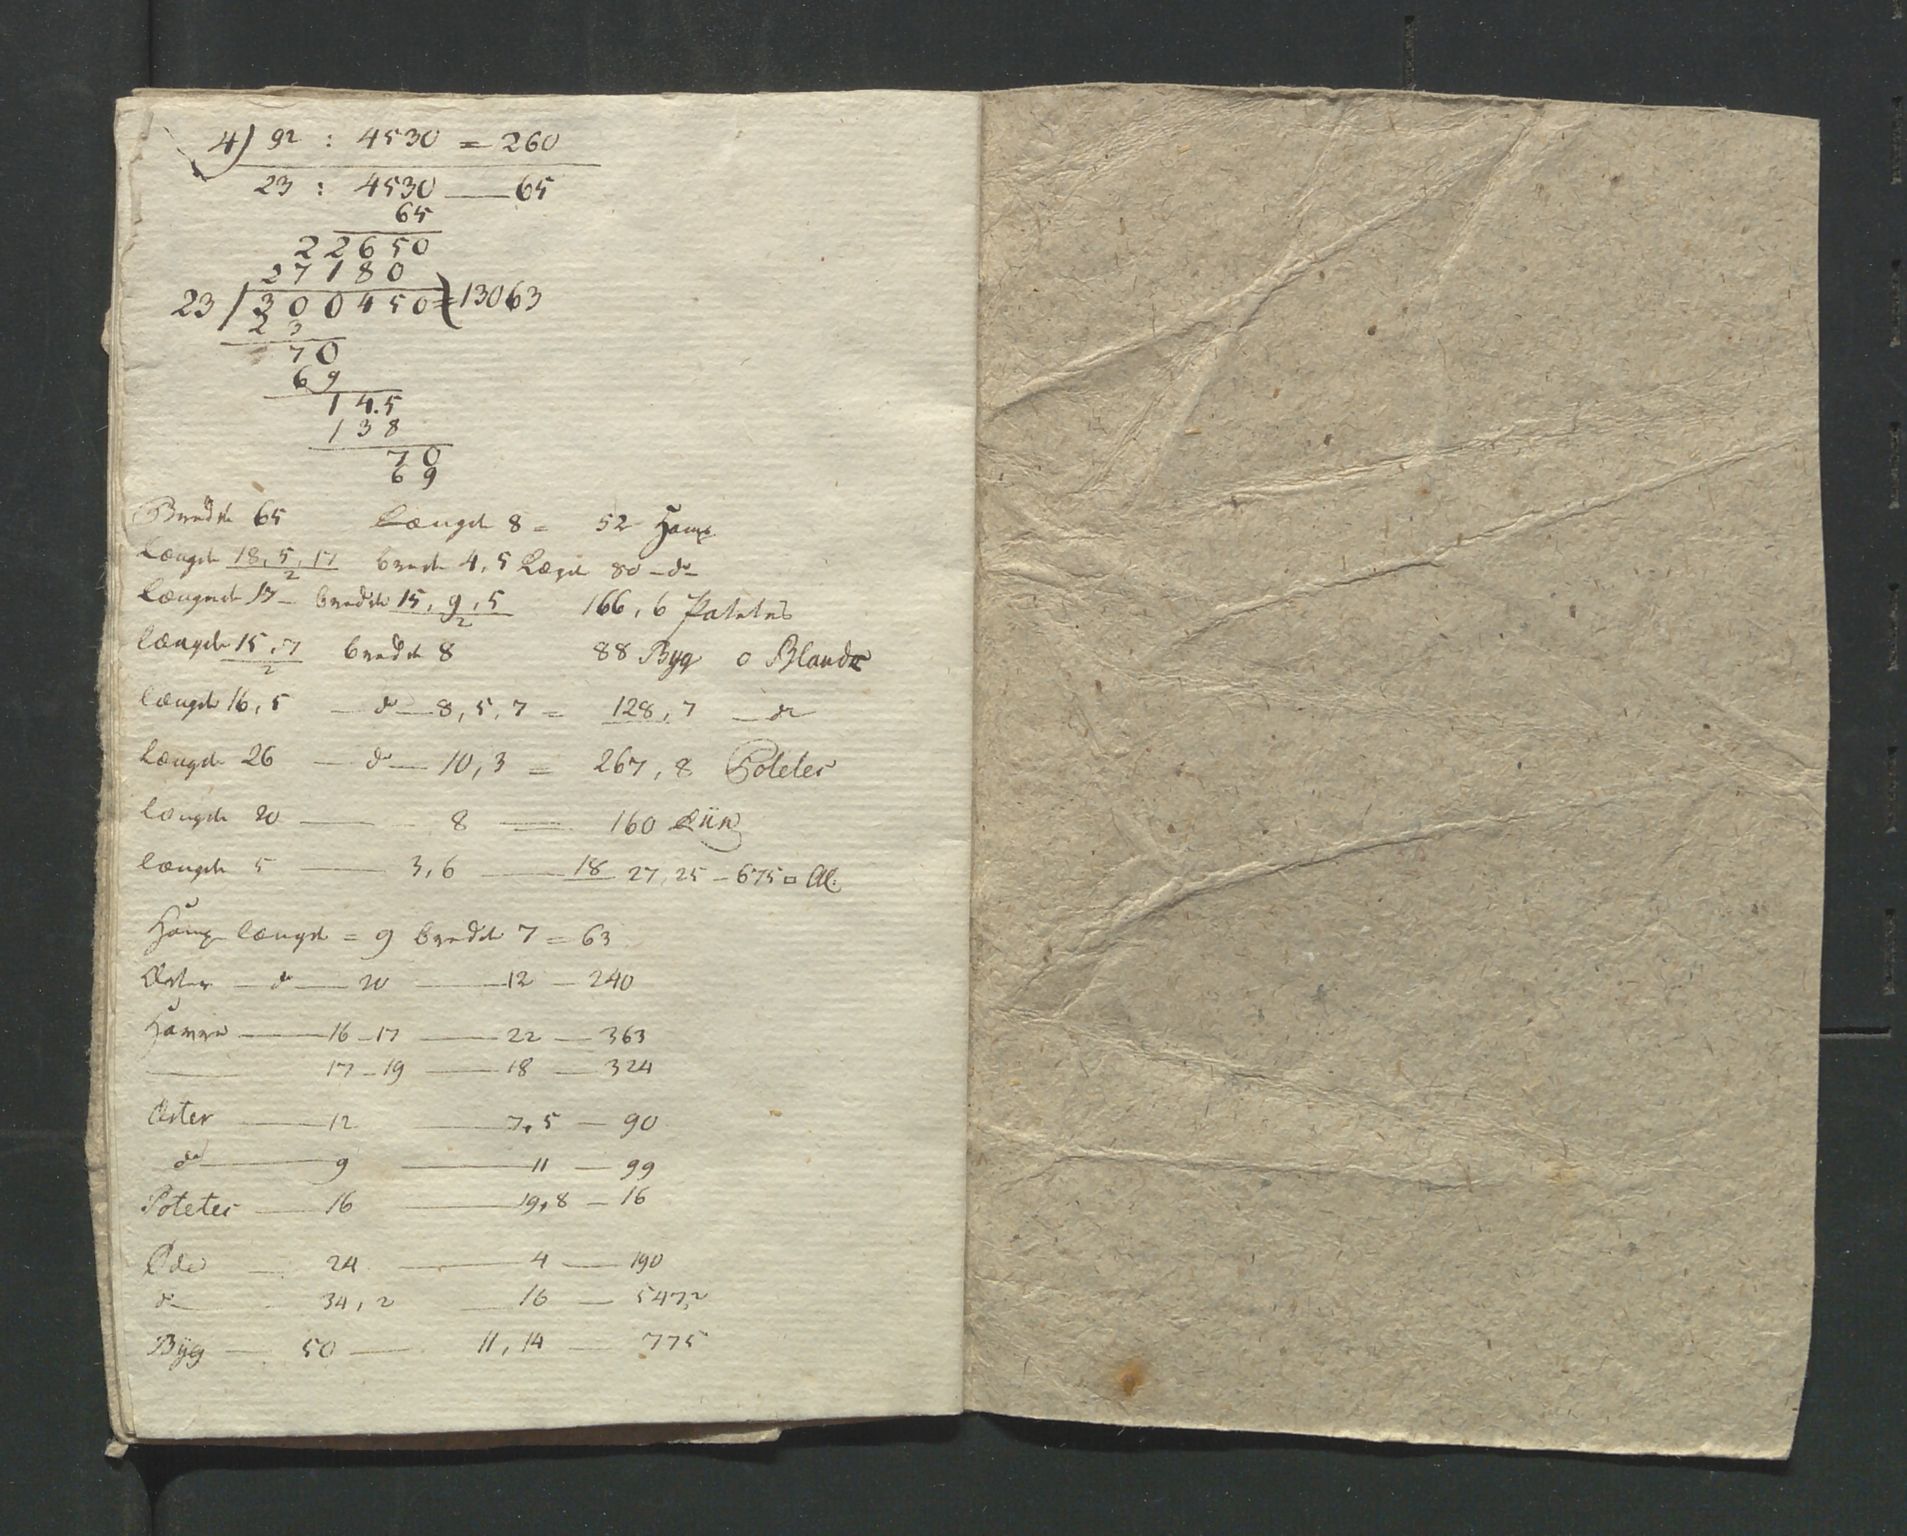 4) 92 : 4530 = 260
23 : 4530 — 65
65
22650
27180
23 / 300450 = 13063
23
70
69
14.5
138
70
69
Bredde 65 Længde 8 = 52 Hamp
Længde 18,5,17 brede 4,5 Længde 80 — do —
2
Længde 13 — bredde 15, 9,5 166,6 Potetes
2
Længde 15,7 bredde 8 88 Byg o Bland
2
Længde 16,5 — do — 8,5,7 = 128,7 — do
Længde 26 — do — 10,3 = 267,8 Poteter
Længde 20 — 8 — 160 Liin
Længde 5 — 3,6 — 18 27,25 — 675 □ Al.
Hamp længde = 9 bredde 7 = 63
Erter — do — 20 — 12 — 240
Havre — 16 — 17 — 22 — 363
— 17 — 19 — 18 — 324
Erter — 12 — 7,5 — 90
do — 9 — 11 — 99
Poteter — 16 — 19,8 — 16
Øde — 24 — 4 — 190
do — 34,2 — 16 — 547,2
Byg — 50 — 11,14 — 775